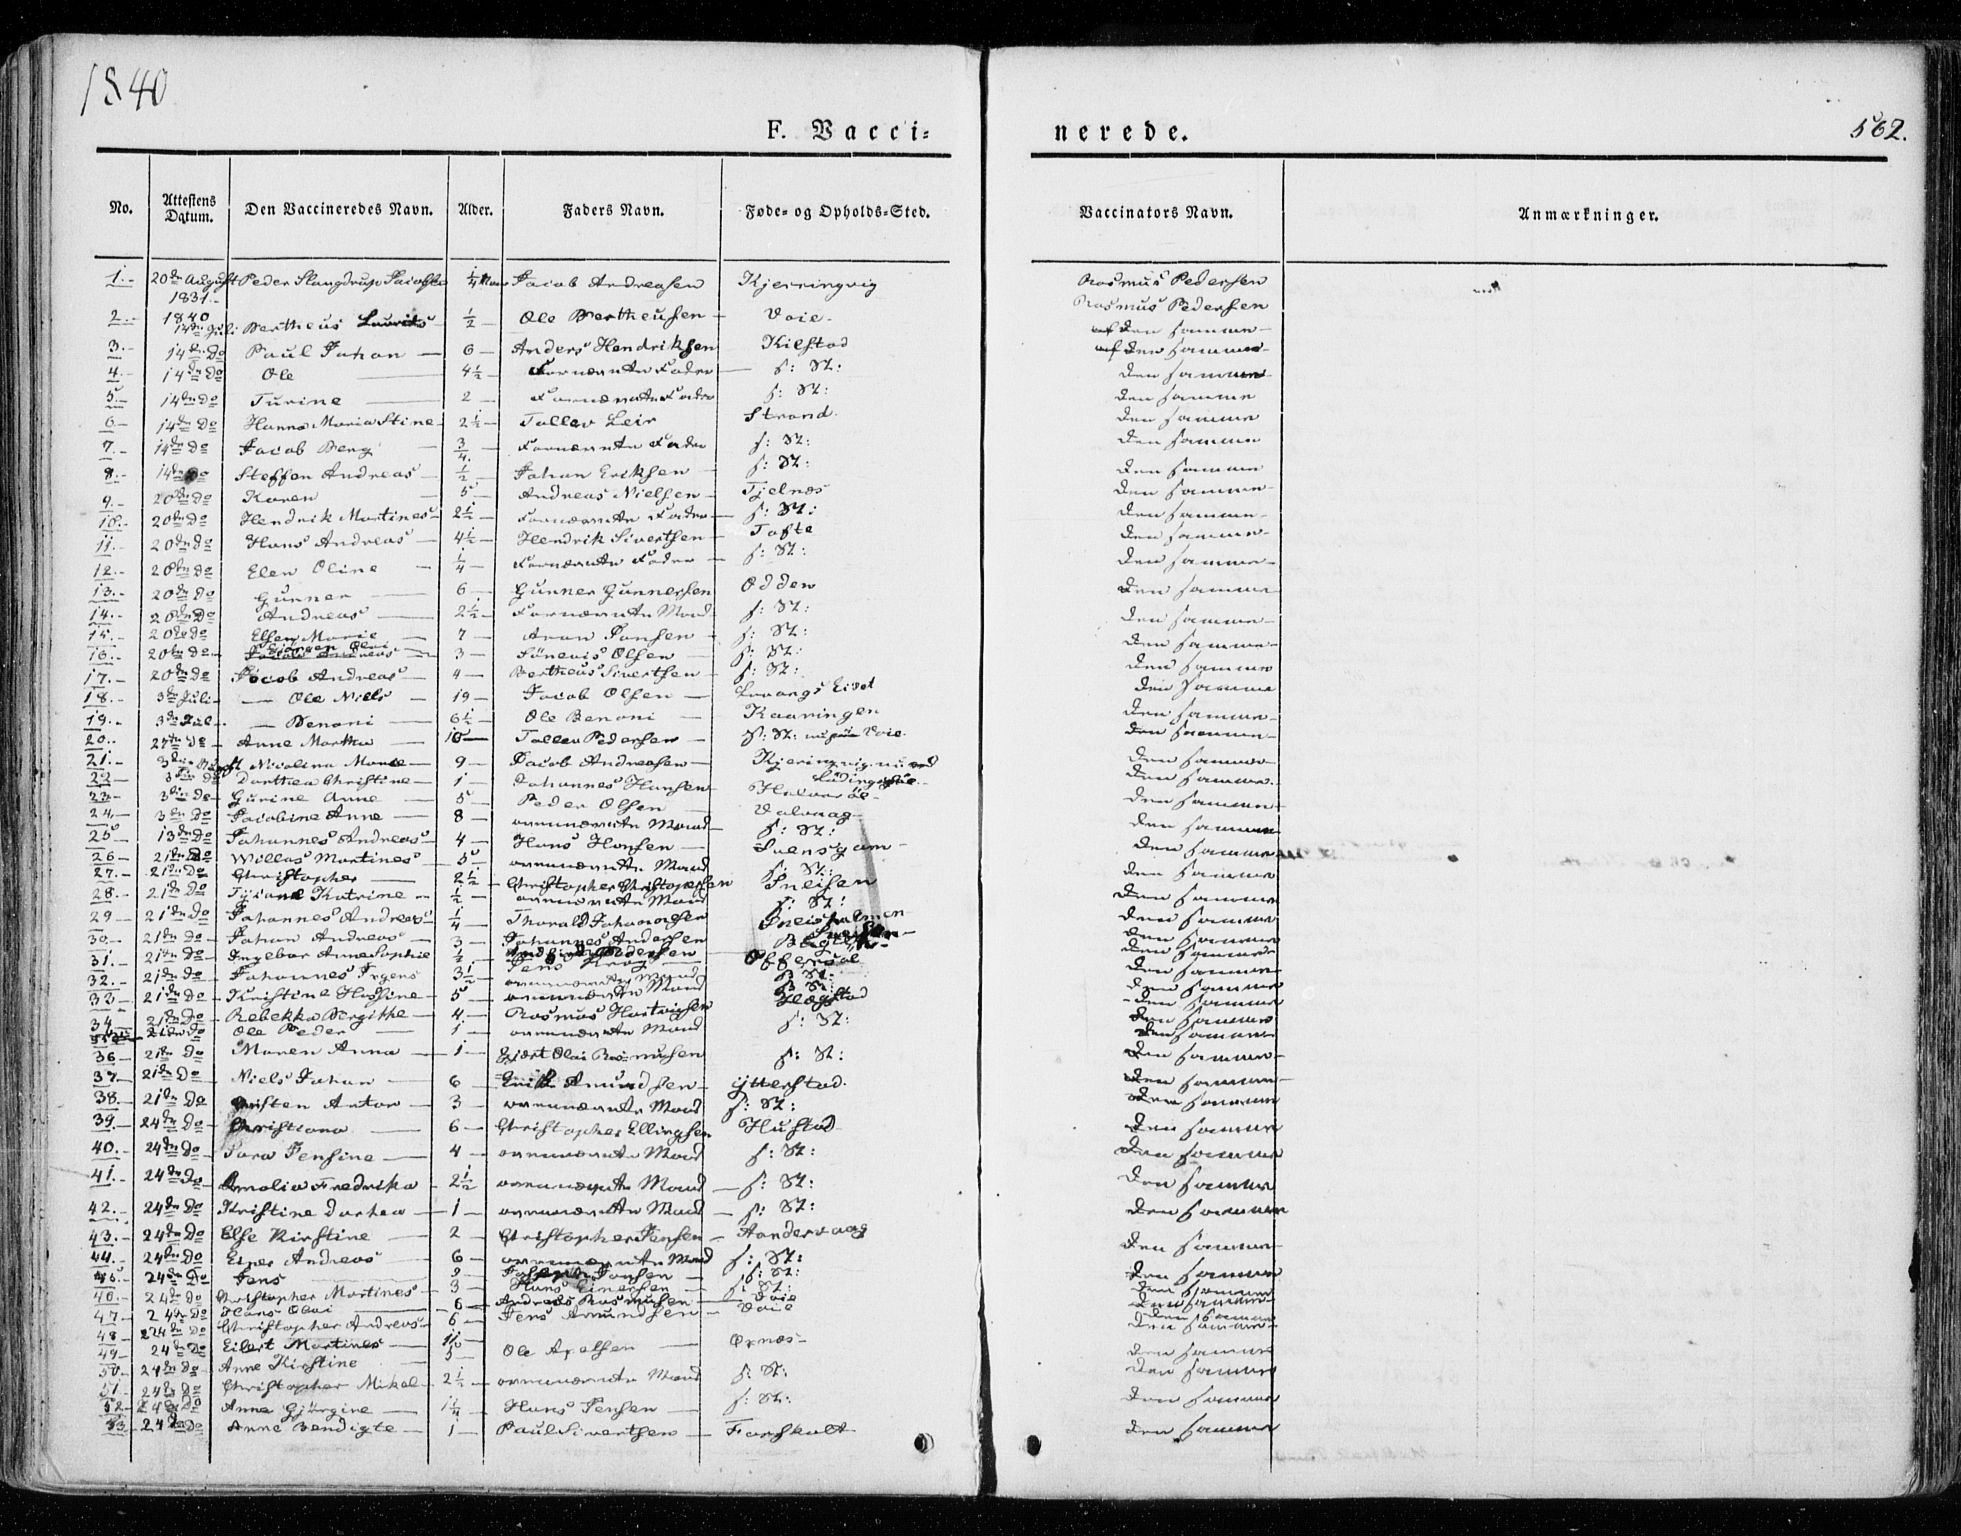 1840
562.
F. Vacci= nerede.
No. Attestens Datum. Den Vaccineredes Navn. Alder. Faders Navn. Føde- og Opholds-Sted. Vaccinators Navn. Anmærkninger.
1. 20de August 1831 Peder Slangdrup Jacobsen 1/4 Jacob Andreasen Kjerringvig Rasmus Pedersen
2. 1840 14de Juli Bertheus Laurits 1/2 Ole Bertheusen Voie Rasmus Pedersen
3. 14de Do Paul Johan 6 Anders Hendriksen Kilstad af den samme
4. 14de Do Ole 4 1/2 Fornævnte Fader s: St: af den samme
5. 14de Do Turine 2 Fornævnte Fader s: St: den samme
6 14de Do Hanna Maria Stine 2 1/2 Tollev Leir Strand den samme
7. 14de Do Jacob Berg 3/4 Fornævnte Fader s: St: den samme
8. 14de Do Steffen Andreas 1/2 Johan Eriksen s: St: den samme
9. 20de Do Karen 5 Andreas Nielsen Tjelnæs den samme
10. 20de Do Hendrik Martines 2 1/2 Fornævnte Fader s: St: den samme
11. 20de Do Hans Andreas 4 1/2 Hendrik Sivertsen Tofte den samme
12. 20de Do Elen Oline 1/4 Fornævnte Fader s: St: den samme
13. 20de Do Gunner 6 Gunner Gunnersen Odden den samme
14. 20de Do Andreas 2 1/2 Fornævnte Mand s: St: den samme
15. 20de Do Elsen Marie 7 Aron Jonsen s: St: den samme
16. 20de Do Olai 3 Olsen s: St: den samme
17. 20de Do Jacob Andreas 4 Bertheus Sivertsen s: St: den samme
18. 3de Juli Ole Niels 19 Jacob Olsen Eidet den samme
19. 3de Juli Benoni 6 1/2 Ole Benoni Kaaringen den samme
20. 27de Do Anne Martha 10 Tollev Pedersen s: St: Voie den samme
21. 3de Nicolina Marie 9 Jacob Andreasen Kjeringvig den samme
22 3de Do Dorthea Christine 1 Johannes Hansen den samme
23 3de Do Gurine Anne 5 Peder Olsen den samme
24. 3de Do Jacobine Anne 8 ovennævnte Mand Valvaag den samme
25 13de Do Johannes Andreas 4 Hans Hansen s: St: den samme
26 21de Do Willas Martines 5 ovennævnte Mand Svensgam den samme
27. 21de Do Christopher 2 1/2 Christopher Christopersen s: St: den samme
28 21de Do Katrine 1/2 ovennævnte Mand Sneisen den samme
29 21de Do Johannes Andreas 1/4 Thorald Johannesen s: St: den samme
30. 21de Do Johan Andreas 3 Johannes Andersen den samme
31. 21de Do Ingebor Anne Sophie 1/2 Pedersen den samme
32. 21de Do Johannes Irgens 3 1/2 Jens Krog Offersøl den samme
33 21de Do Kristine Hossine 5 ovennævnte Mand s: St: den samme
34 21de Do Rebekka Bergithe 4 Rasmus Hartvigsen Hægstad den samme
21de Do Ole Peder 1 ovennævnte Mand s: St: den samme
36 21de Do Maren Anna 1 Gjært Olai Rasmusen s: St: den samme
37 21de Do Niels Johan 6 Amundsen ytterstad. den samme
38. 21de Do Cristen Anton 3 ovennævnte Mand s: St: den samme
39. 24de Do Christiana 6 Christopher Ellingsen Hustad den samme
40. 24de Do Sara Jensine 4 ovennævnte Mand s: St: den samme
41. 24de Do Amalia Fredrika 2 1/2 ovennævnte Mand s: St: den samme
42. 24de Do Kristine Dorhea 1 ovennævnte Mand s: St: den samme
43. 24de Do Else Kirstine 2 Christopher Jensen Handervaag den samme
44. 24de Do Einer Andreas 6 ovennævnte Mand s: St: den samme
45. 24de Do Jens Jonsen s: St: den samme
46. 24de Do Christopher Martines 3 Hans Einersen s: St: den samme
47 24de Do Hans Olai 6 Andreas Rasmusen Voie den samme
48 24de Do Christopher Andreas 6 Jens Amundsen Voie den samme
49 24de Do Eilert Martines
50. 24de Do Anne Kirstine 5 Ole Axelsen Ørnæs den samme
51 24de Do Christopher Mikal 2 1/2 ovennævnte Mand s: St: den samme
52 24de Do Anna Gjørgine 1 1/4 Hans Jensen s: St: den samme
53 24de Do Anne Bendigte 1 Paul Sivertsen Forskalt den samme